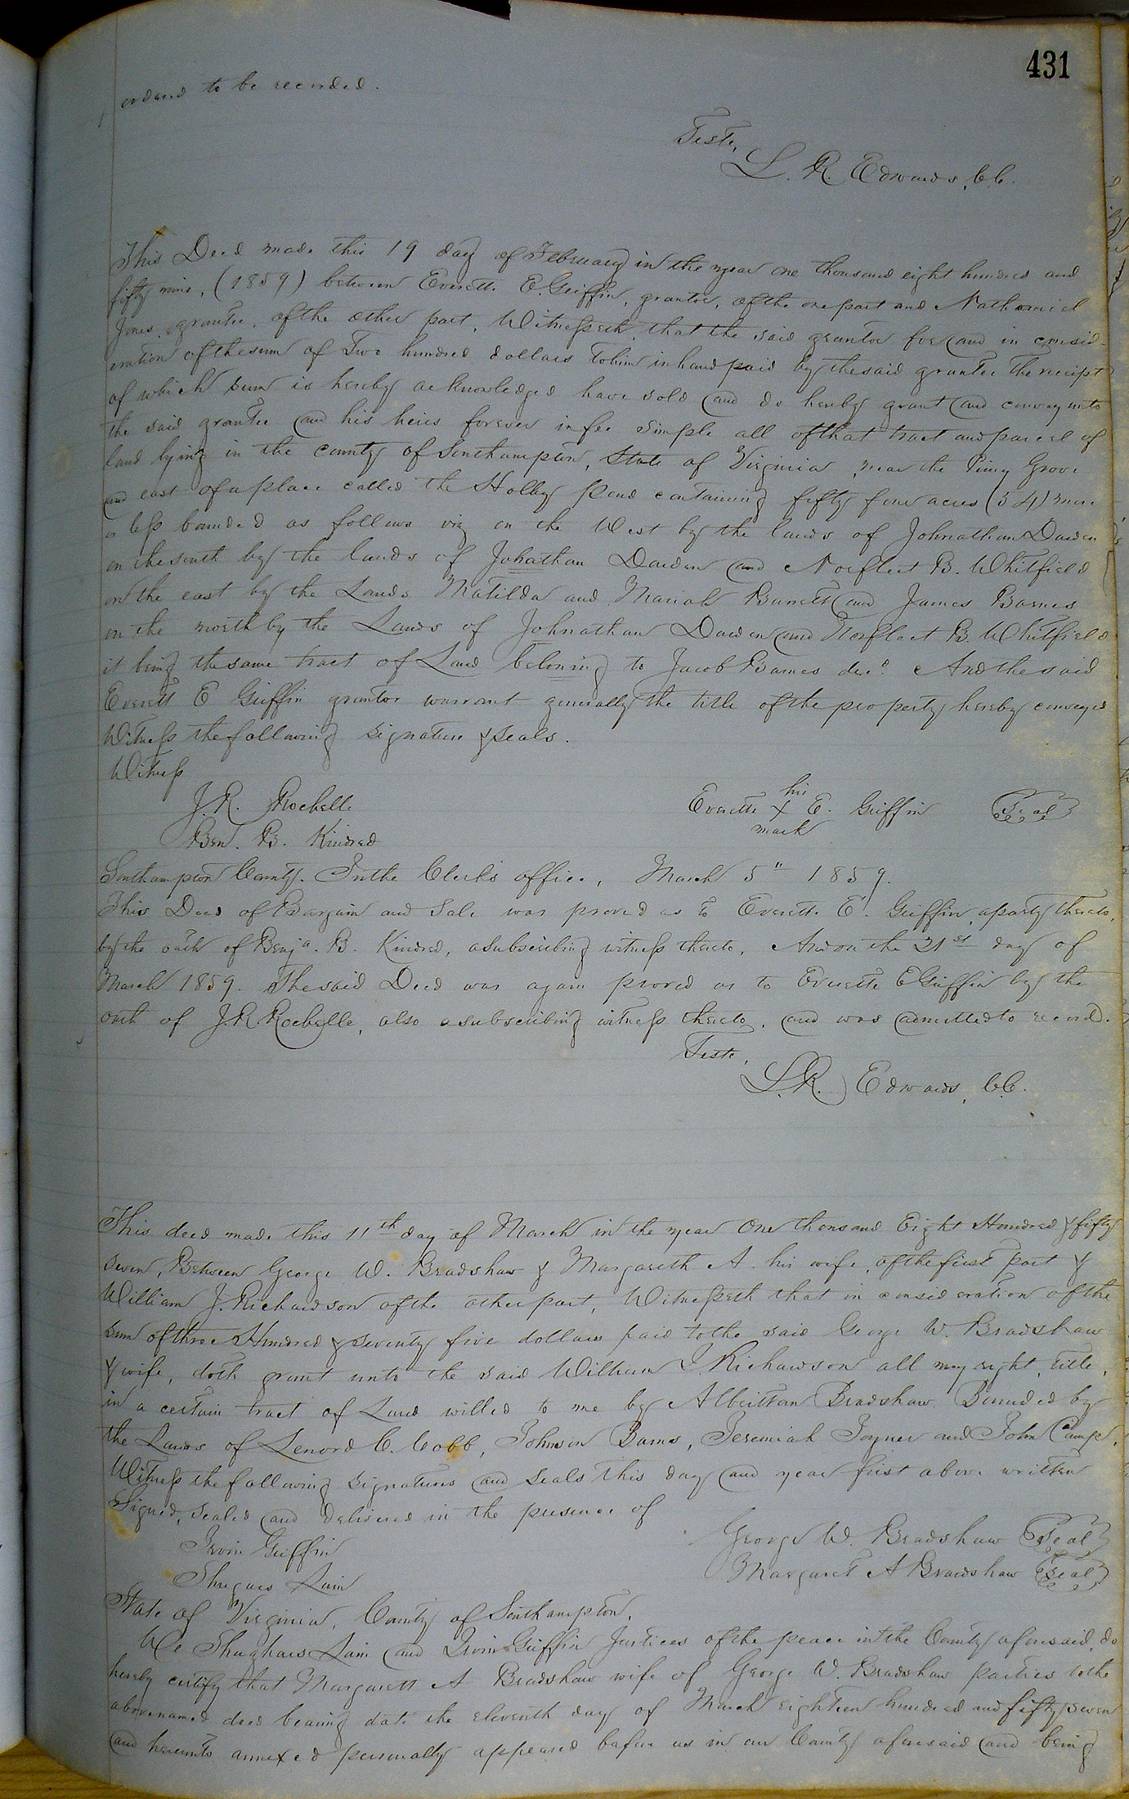 431
ordered to be recorded.
Teste,
L. R. Edwards, C.C.
This Deed made this 19 day of February in the year one thousand eight hundred and
fifty nine, (1859) between Everette E. Griffin, grantor, of the one part and Nathaniel
Jones, grantee, of the other part, Witnesseth, that the said grantor for and in consid-
eration of the sum of Two hundred dollars to him in hand paid by the said grantee the receipt
of which sum is hereby acknowledged have sold and do hereby grant and convey unto
the said grantee and his heirs forever in fee simple all of that tract and parcel of
land lying in the county of Southampton, State of Virginia, near the Piney Grove
and east of a place called the Holly pond containing fifty four acres (54) more
or less bounded as follows viz on the West by the lands of Johnathan Darden
on the south by the lands of Johathan Darden and Norfleet B. Whitfield
on the east by the Lands Matilda and Mariah Barrett and James Barnes
on the north by the Lands of Johnathan Darden and Norfleet B. Whitfield
it being the same tract of Land beloning to Jacob Barnes decd. And the said
Everett E Griffin grantor warrant generally the title of the property hereby conveyed
Witness the following signature & seals.
Witness
J. R. Rochelle
Ben. B. Kindred
his
Everette X E. Griffin Seal
mark
Southampton County. In the Clerk's office, March 5th 1859.
This Deed of Bargain and Sale was proved as to Everette E. Griffin, a party thereto,
by the oath of Benja. B. Kindred, a subscribing witness thereto, And on the 21st day of
March 1859. The said Deed was again proved as to Everette E Griffin by the
oath of J. R Rochelle, also a subscribing witness thereto, and was admitted to record.
Teste,
L. R. Edwards, C.C.
This deed made this 11th day of March in the year One thousand Eight Hundred & fifty
seven, Between George W. Bradshaw & Margareth A. his wife, of the first part &
William J. Richardson of the other part, Witnesseth that in consideration of the
sum of three Hundred & seventy five dollars paid to the said George W. Bradshaw
& wife, doth grant unto the said William J. Richawson all my right, title,
in a certain tract of Land willed to me by Albrittan Bradshaw. Bounded by
the Lands of Lenord C. Cobb, Johnson Barns, Jeremiah Joyner and John Camp,
Witness the following signatures and seals this day and year first above written
Signed, sealed and delivered in the presence of
Irvin Griffin
Shugars Lain
George W. Bradshaw Seal
Margaret A Bradshaw Seal
State of Virginia, County of Southampton,
We Shughars Lain and Irvin Griffin Justices of the peace in the County aforesaid, do
hereby certify that Margarett A Bradshaw wife of George W. Bradshaw parties to the
above named deed bearing date the eleventh day of March eighteen hundred and fifty seven
and hereunto annexed personally appeared before us in our County aforesaid and being